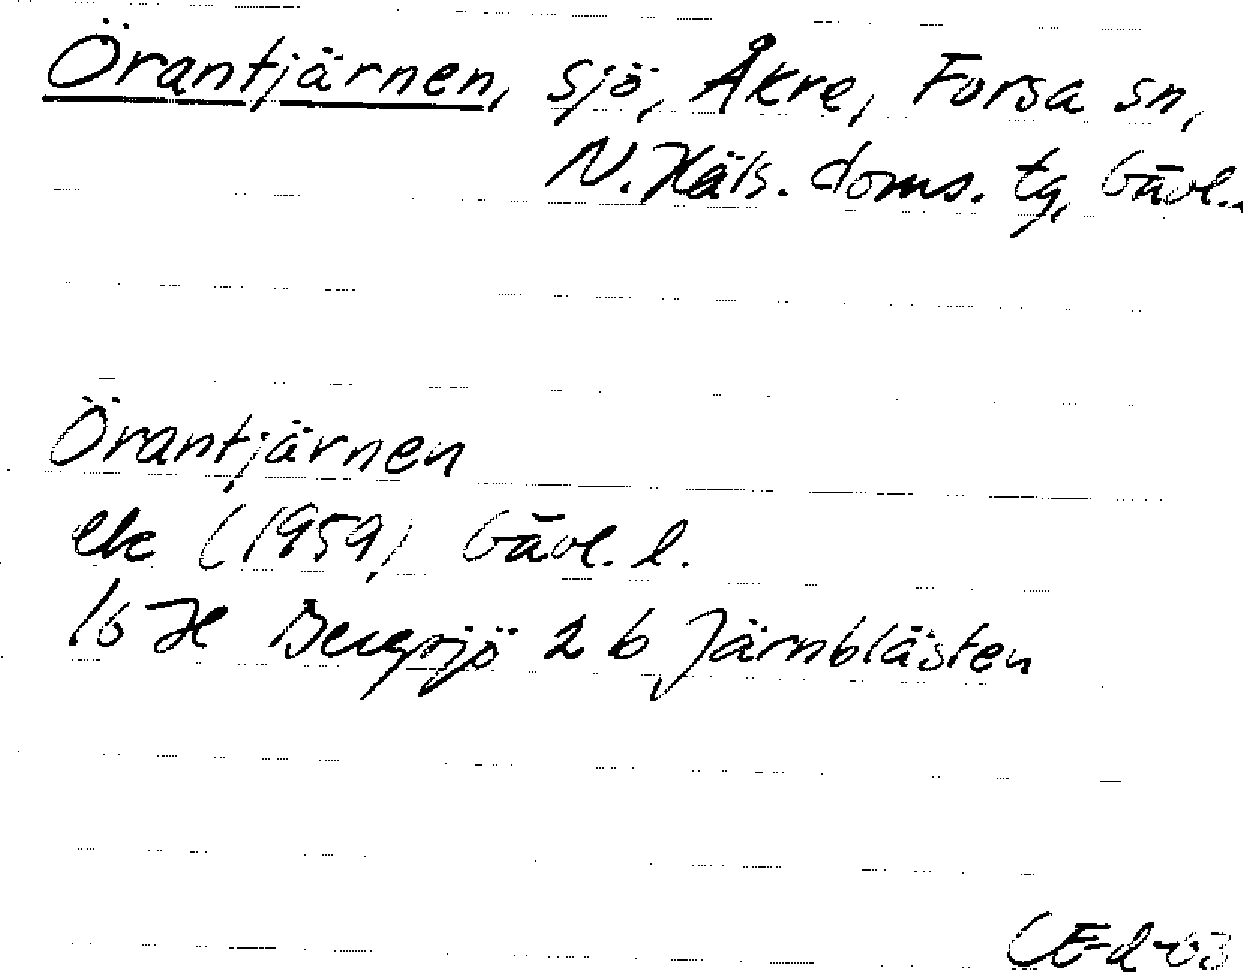 Örantjärnen, sjö, Åkre, Forsa sn,
N. Häls. doms. tg, Gävl..
Örantjärnen
ek (1959) Gävl. l.
16 H Bergsjö 2 b Järnblästen
CE-d-63